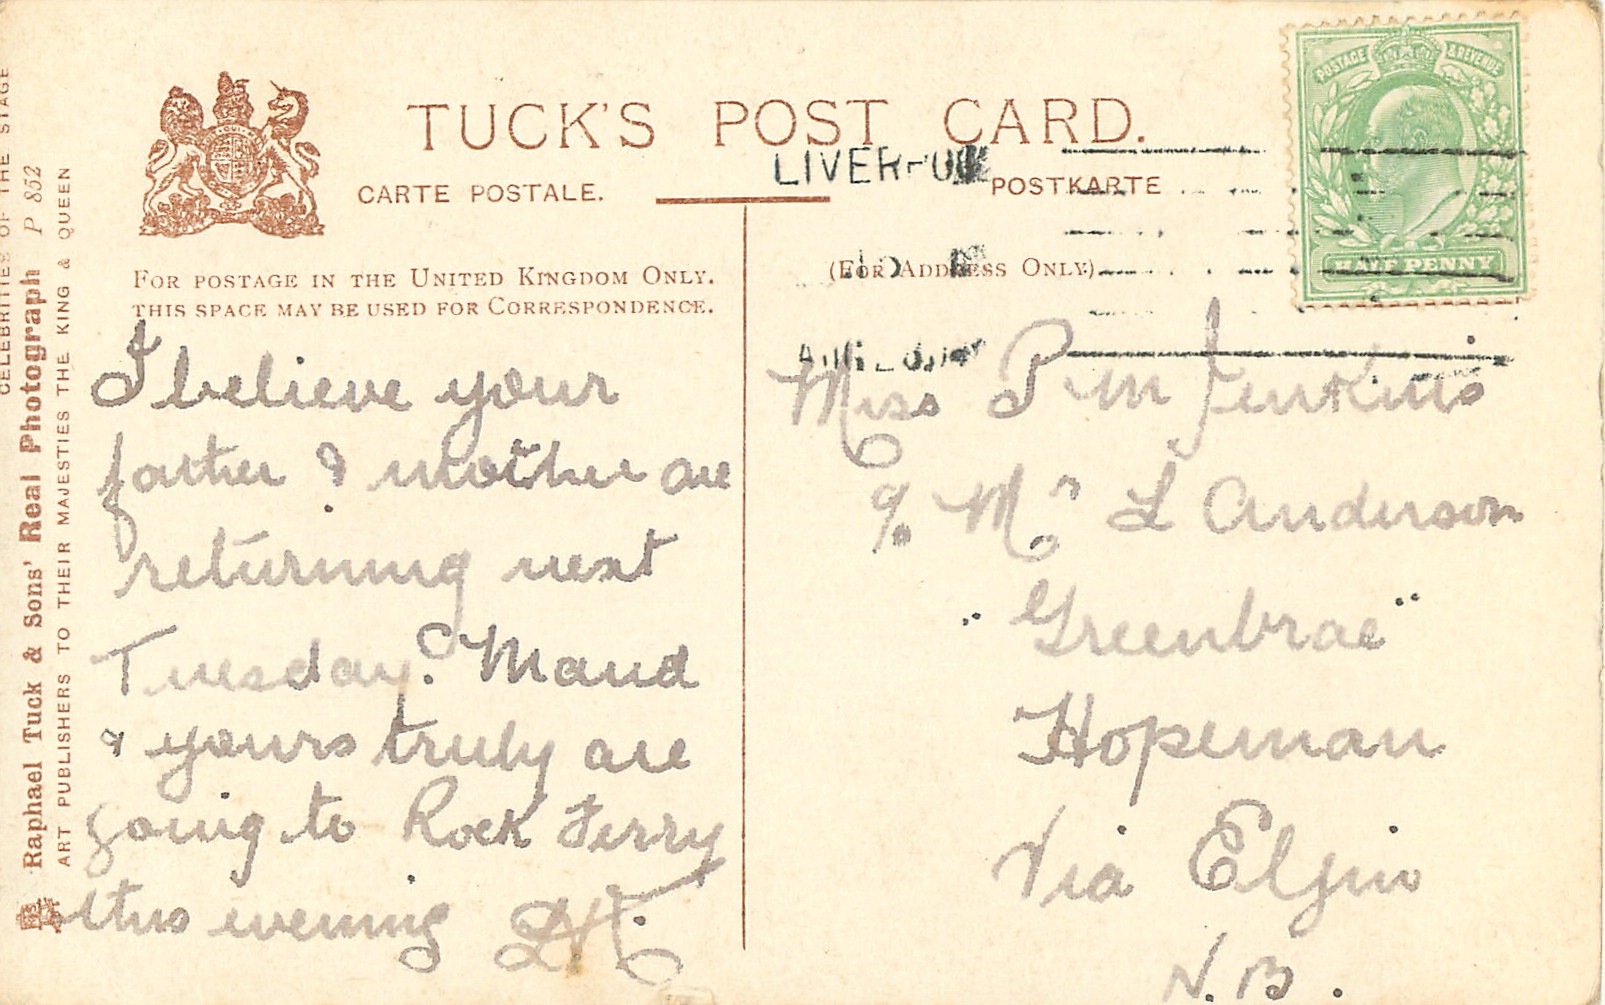 TUCK'S POST CARD.
CARTE POSTALE.
POSTKARTE
LIVERPOOL
POSTAGE & REVENUE
HALF PENNY
FOR POSTAGE IN THE UNITED KINGDOM ONLY.
THIS SPACE MAY BE USED FOR CORRESPONDENCE.
(FOR ADDRESS ONLY.)
I believe your
father & mother are
returning next
Tuesday. Maud
& yours truly are
going to Rock Ferry
this evening
Miss P M Jenkins
c/o Mrs L Anderson
"Greenbrae"
Hopeman
Via Elgin
N.B.
CELEBRITIES OF THE STAGE
Raphael Tuck & Sons' Real Photograph P 852
ART PUBLISHERS TO THEIR MAJESTIES THE KING & QUEEN